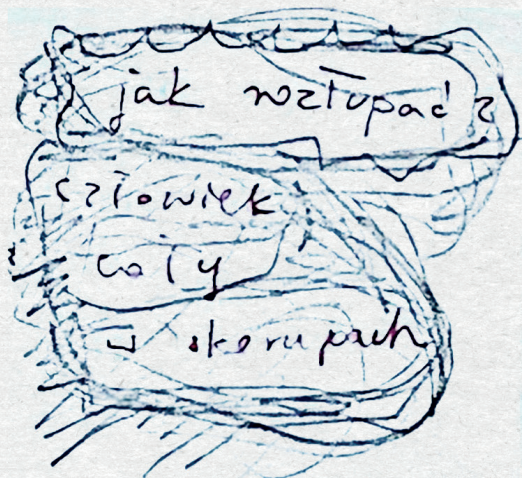 jak rozłupać ?
człowiek
cały
w skorupach